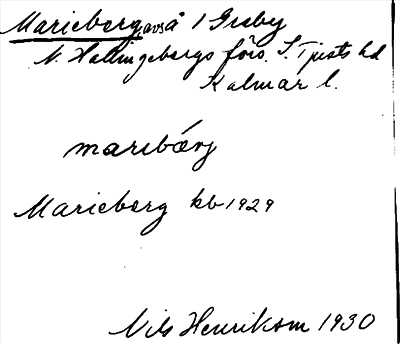 Marieberg avs å 1 Greby
N. Hallingebergs förs. S. Tjusts hd
Kalmar l.
maribærj
Marieberg kb 1929
Nils Henrikson 1930